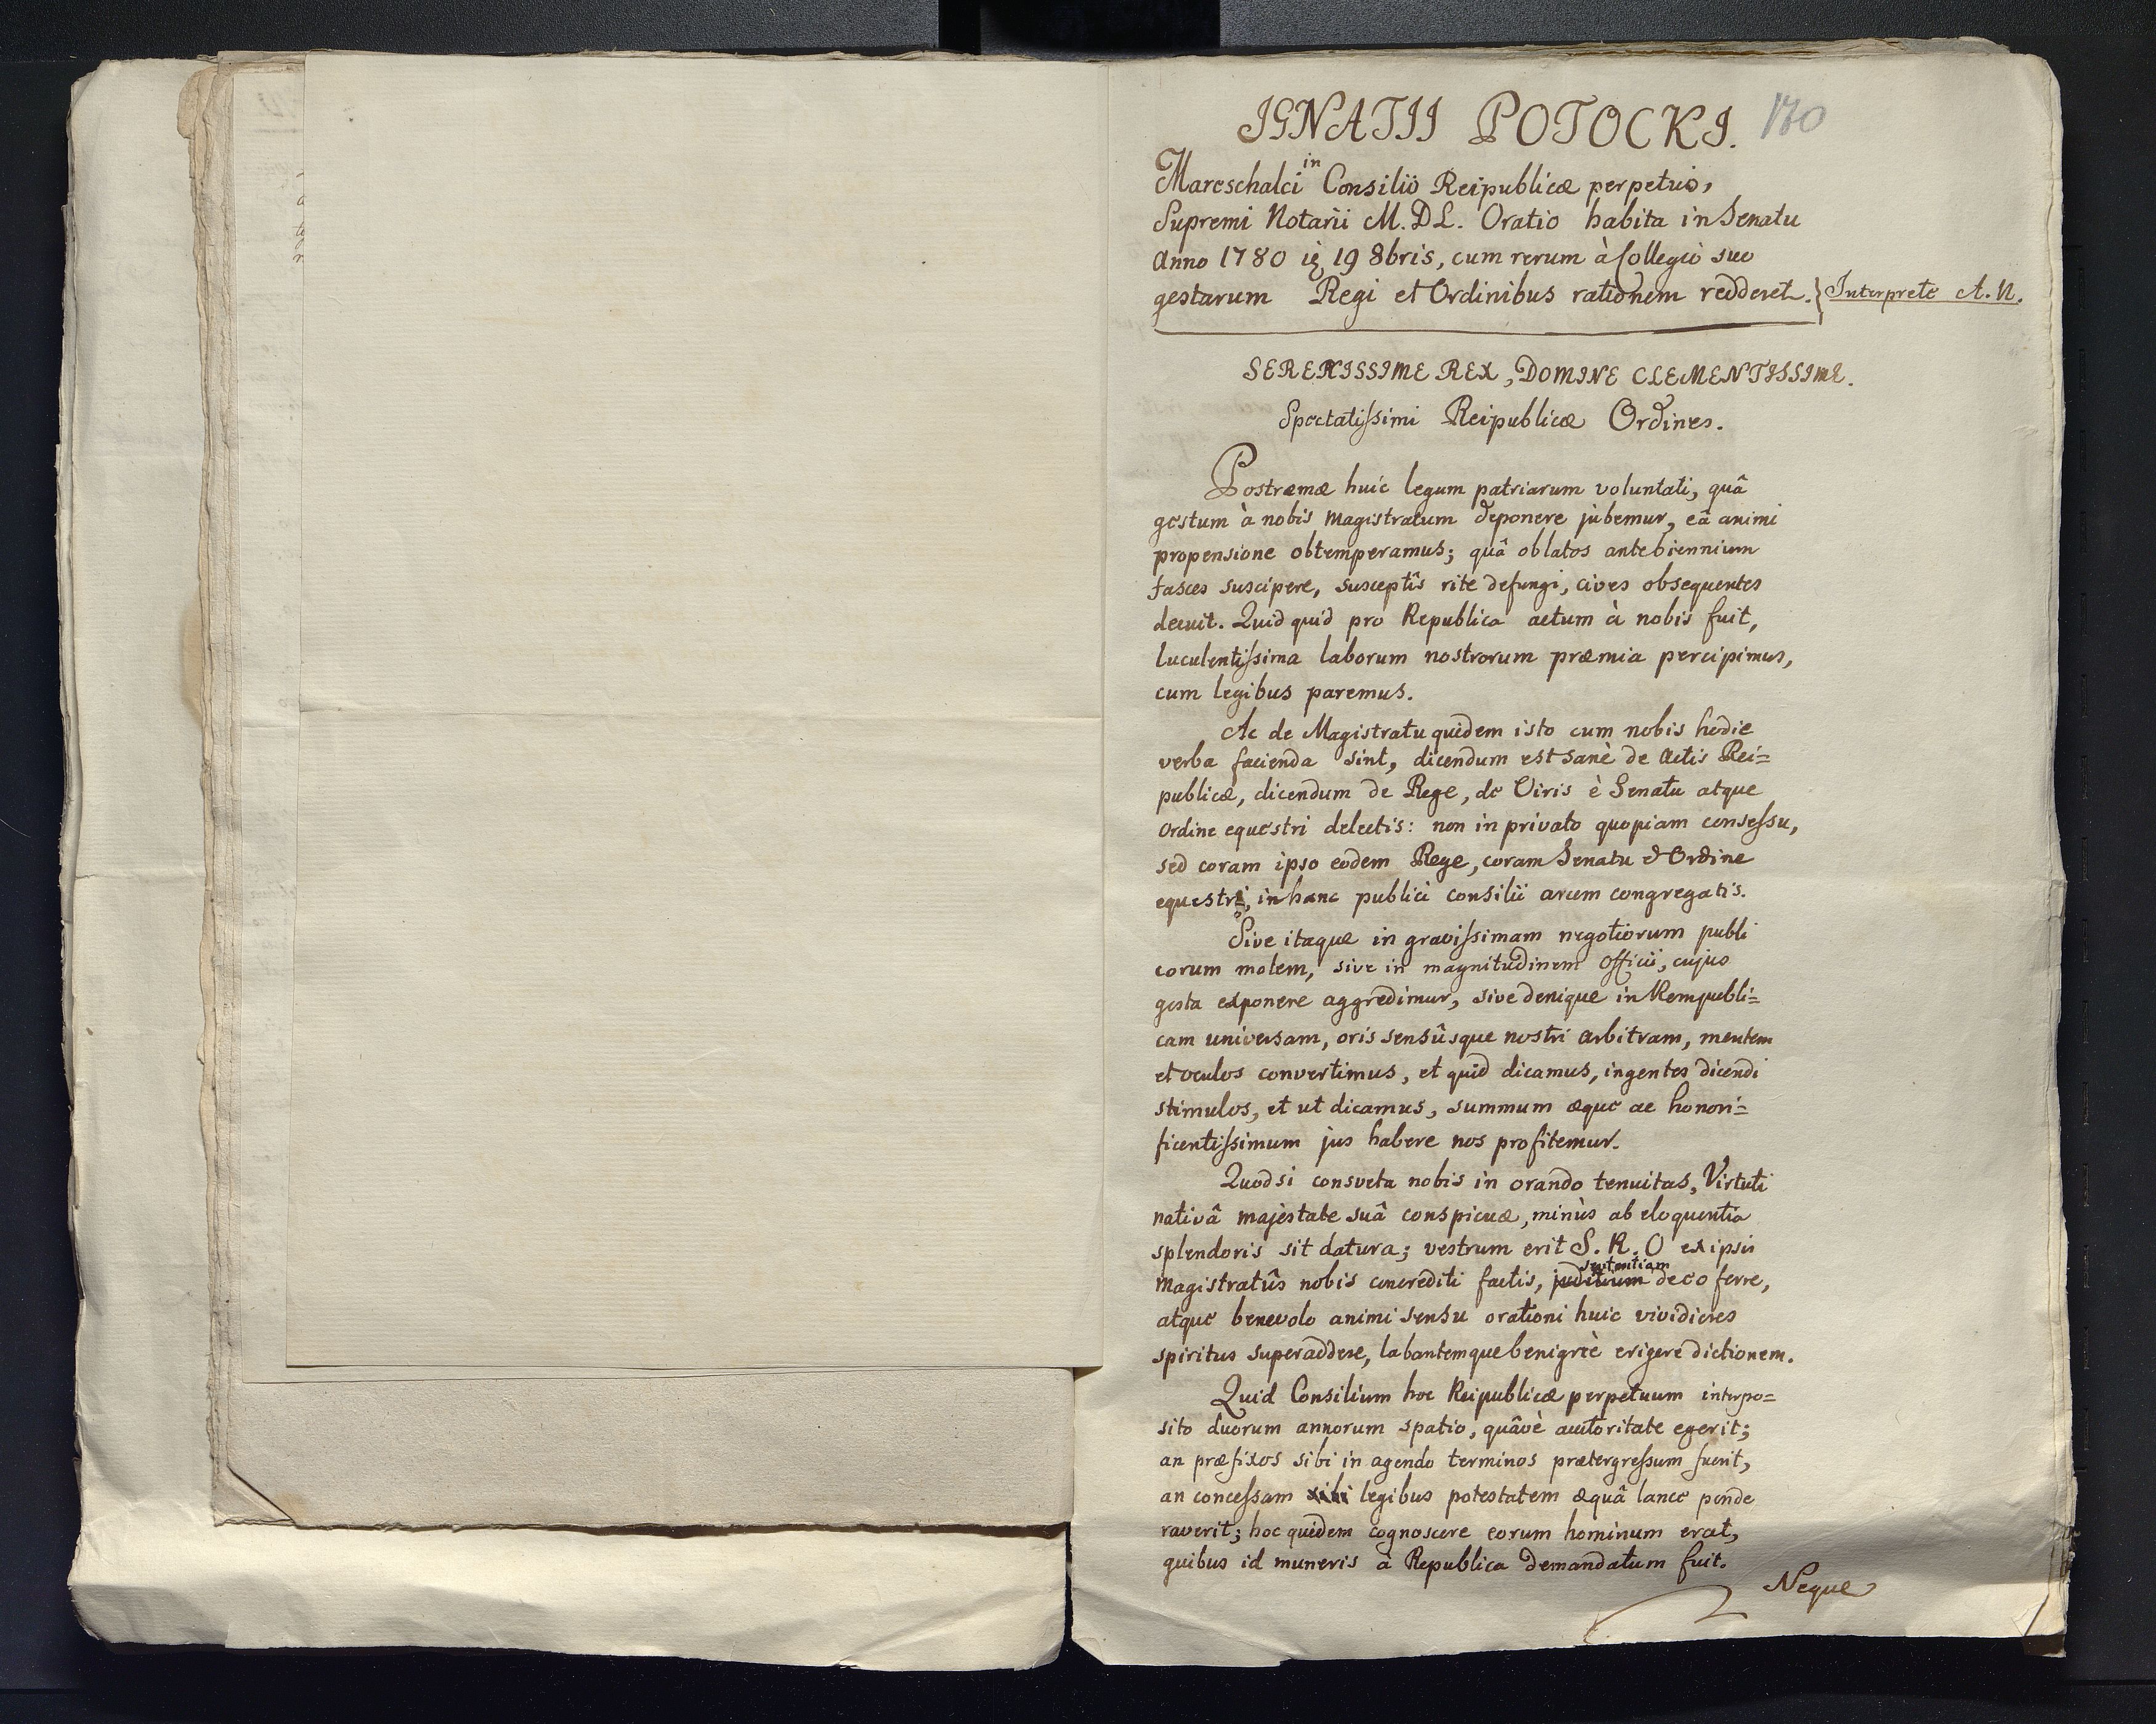 IGNATII POTOCKI. 170
Mareschalci in Consilio Reipublicæ perpetuo,
Supremi Notarii M. D L. Oratio habita in Senatu
Anno 1780 19 8bris, cum rerum à Collegio suo
gestarum Regi et Ordinibus rationem redderet. } Interprete A. N.
SERENISSIME REX, DOMINE CLEMENTISSIME.
Spectatissimi Reipublicæ Ordines.
Postræmæ huic legum patriarum voluntati, quâ
gestum à nobis Magistratum deponere jubemur, eâ animi
propensione obtemperamus; quâ oblatos ante biennium
fasces suscipere, susceptîs rite defungi, cives obsequentes
decuit. Quid quid pro Republica actum à nobis fuit,
luculentissima laborum nostrorum præmia percipimus,
cum legibus paremus.
Ac de Magistratu quidem isto cum nobis hodie
verba facienda sint, dicendum est sanè de Actis Rei=
publicæ, dicendum de Rege, de Viris è Senatu atque
Ordine equestri delectis: non in privato quopiam consessu,
sed coram ipso eodem Rege, coram Senatu & Ordine
equestri, in hanc publici consilii arcem congregatis.
Sive itaque in gravissimam negotiorum publi
corum molem, sive in magnitudinem Officii, cujus
gesta exponere aggredimur, sive denique in Rempubli=
cam universam, oris sensûsque nostri arbitram, mentem
et oculos convertimus, et quid dicamus, ingentes dicendi
stimulos, et ut dicamus, summum æque ac honori=
ficentissimum jus habere nos profitemur.
Quodsi consveta nobis in orando tenuitas, Virtuti
nativâ majestate suâ conspicuæ, minùs ab eloquentia
splendoris sit datura; vestrum erit S. R. O ex ipsis
sententiam
Magistratûs nobis concrediti factis, juditium de eo ferre,
atque benevolo animi sensu orationi huic vividiores
spiritus superaddere, labantemque benignè erigere dictionem.
Quid Consilium hoc Reipublicæ perpetuum interpo=
sito duorum annorum spatio, quâvè auctoritate egerit;
an præfixos sibi in agendo terminos prætergressum fuerit,
an concessam sibi legibus potestatem æquâ lance ponde
raverit; hoc quidem cognoscere eorum hominum erat,
quibus id muneris à Republica demandatum fuit.
Neque